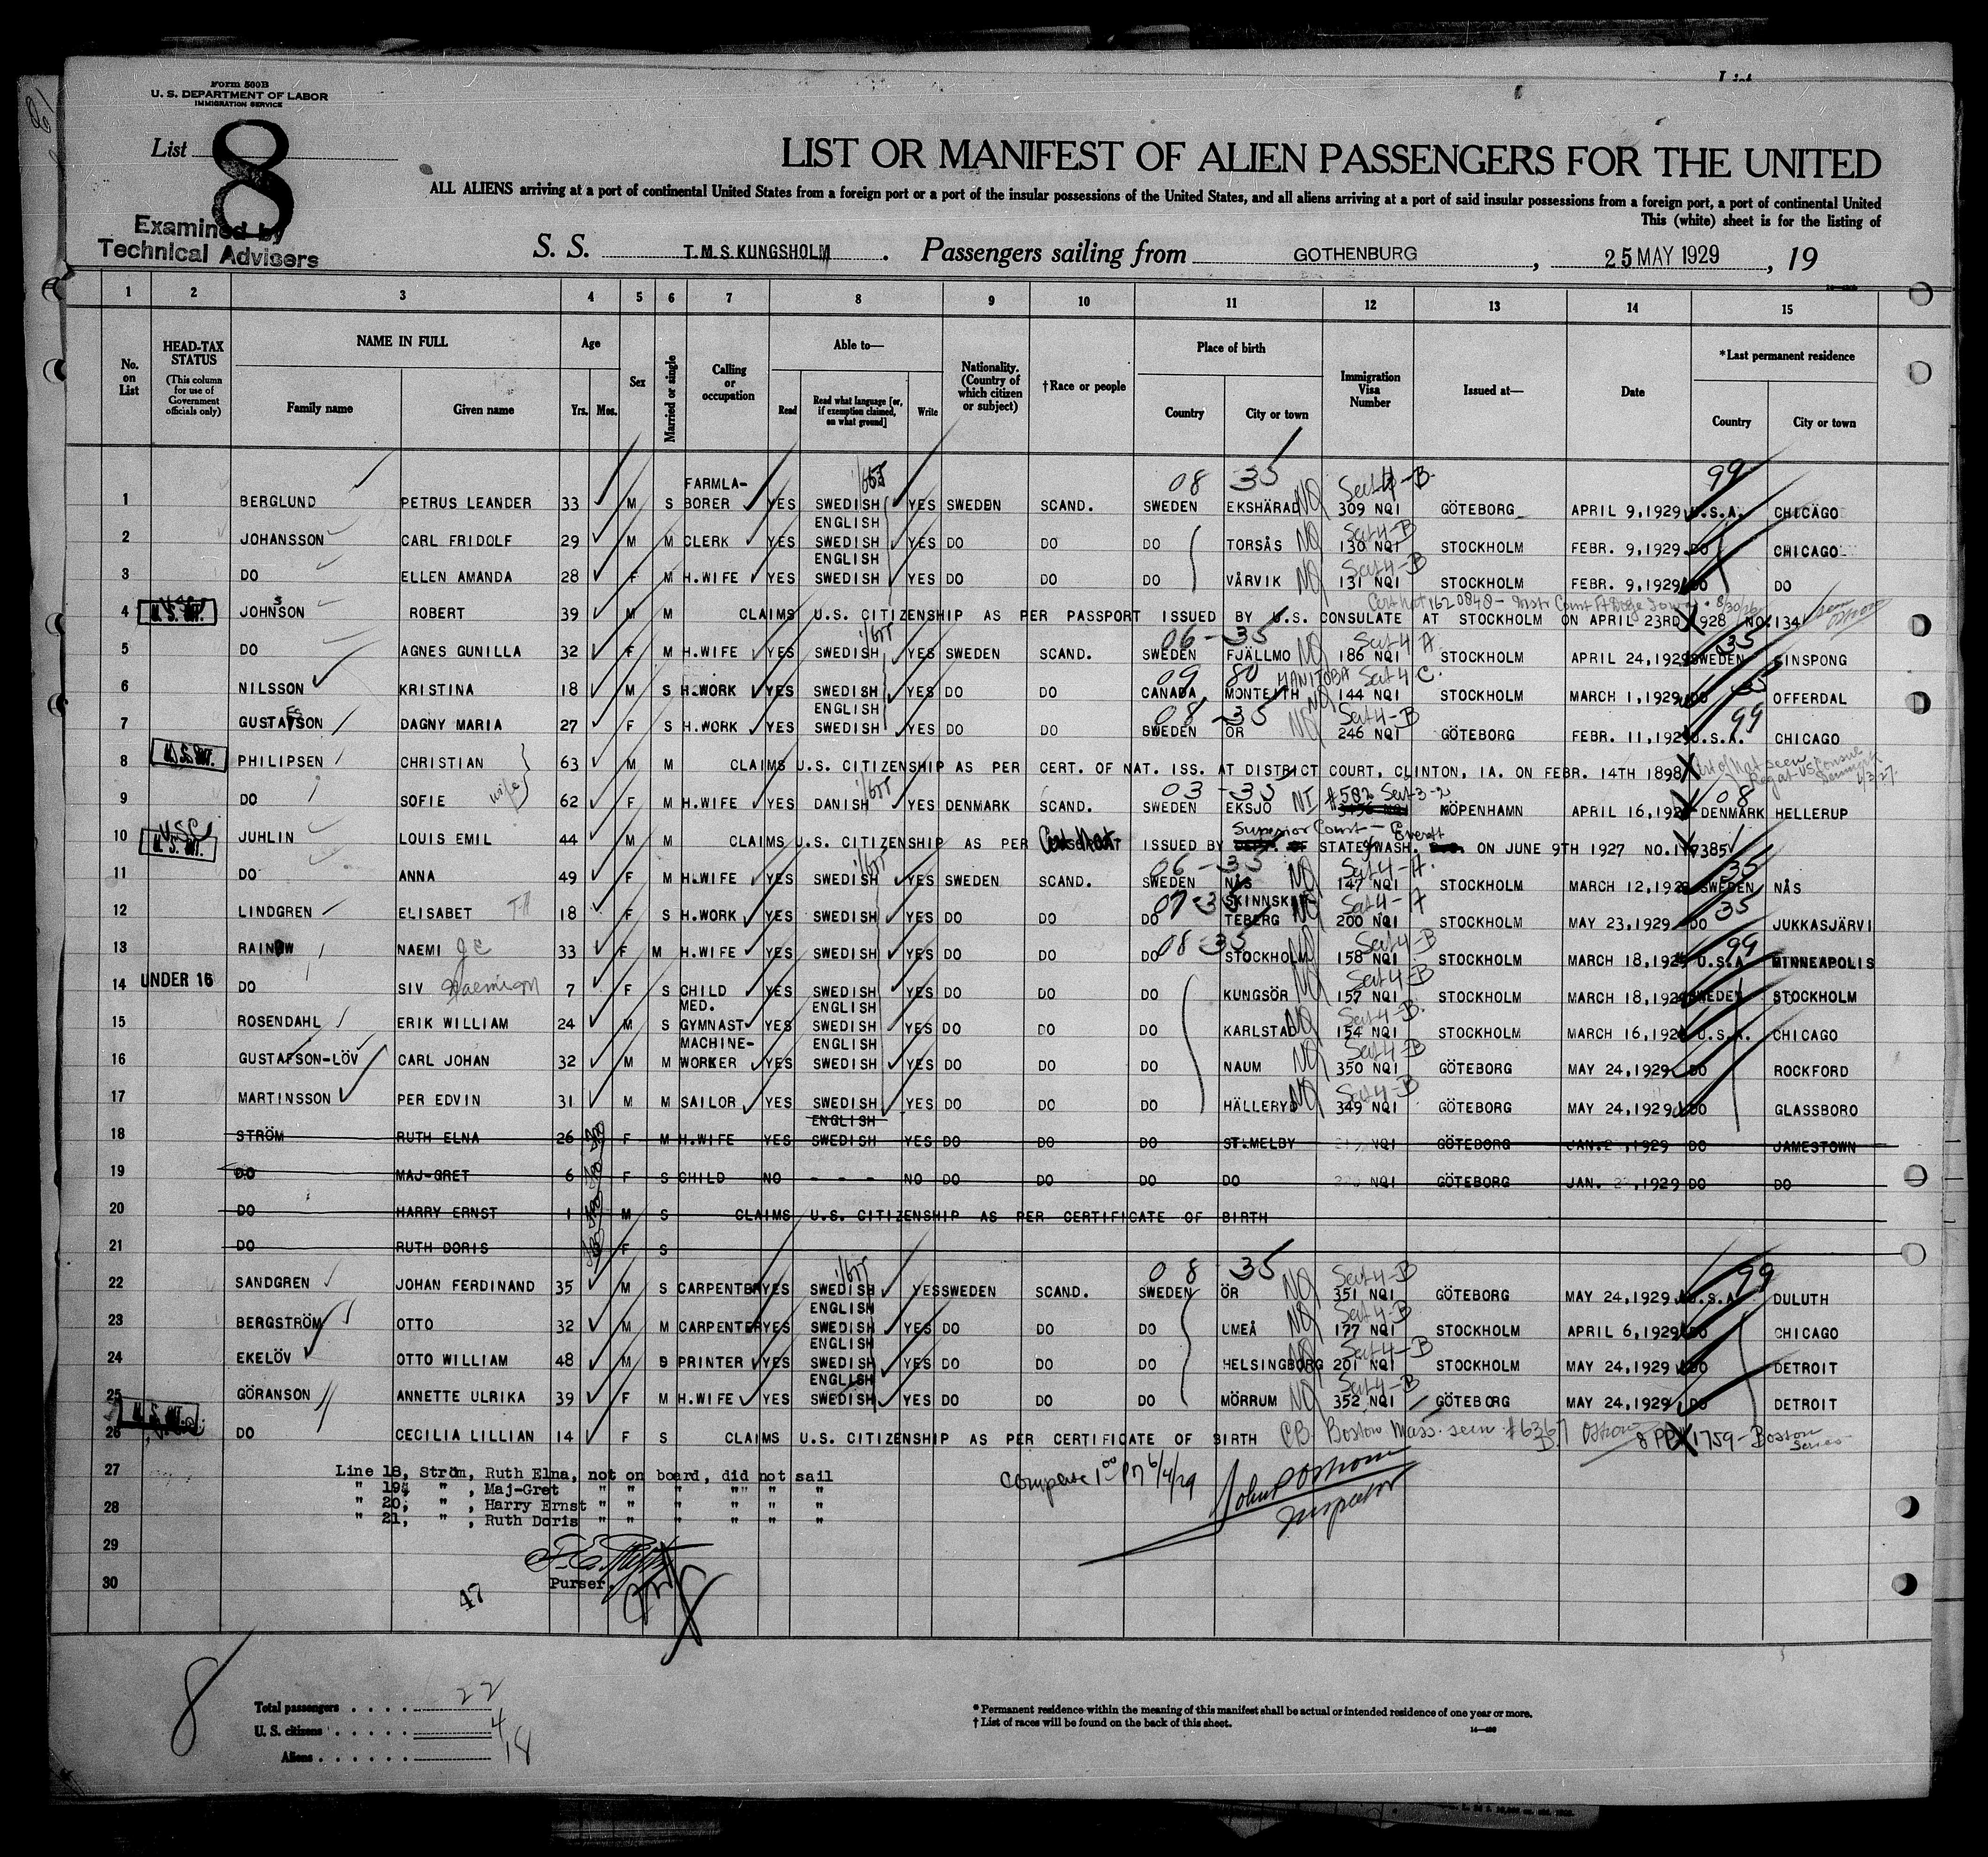 Form 500B
U. S. DEPARTMENT OF LABOR
IMMIGRATION SERVICE
List 8
Examined by
Technical Advisers
LIST OR MANIFEST OF ALIEN PASSENGERS FOR THE UNITED
ALL ALIENS arriving at a port of continental United States from a foreign port or a port of the insular possessions of the United States, and all aliens arriving at a port of said insular possessions from a foreign port, a port of continental United
This (white) sheet is for the listing of
S. S. T.M.S KUNGSHOLM . Passengers sailing from GOTHENBURG , 25 MAY 1929 , 19
1 2 3 4 5 6 7 8 9 10 11 12 13 14 15
No. on List
HEAD-TAX STATUS (This column for use of Government officials only)
NAME IN FULL
Family name Given name
Age Yrs. Mos.
Sex
Married or single
Calling or occupation
Able to—
Read Read what language [or, if exemption claimed, on what ground] Write
Nationality. (Country of which citizen or subject)
†Race or people
Place of birth
Country City or town
Immigration Visa Number
Issued at—
Date
*Last permanent residence
Country City or town
08 35 Sect 4-B 99
1 BERGLUND PETRUS LEANDER 33 M S FARMLA-BORER YES SWEDISH YES SWEDEN SCAND. SWEDEN EKSHÄRAD NQ 309 NQI GÖTEBORG APRIL 9,1929 U.S.A. CHICAGO
2 JOHANSSON CARL FRIDOLF 29 M M CLERK YES ENGLISH SWEDISH YES DO DO DO TORSÅS NQ Sect 4-B 130 NQI STOCKHOLM FEBR. 9,1929 DO CHICAGO
3 DO ELLEN AMANDA 28 F M H.WIFE YES ENGLISH SWEDISH YES DO DO DO VÅRVIK NQ Sect 4-B 131 NQI STOCKHOLM FEBR. 9,1929 DO DO
4 JOHNSON ROBERT 39 M M CLAIMS U.S. CITIZENSHIP AS PER PASSPORT ISSUED BY U.S. CONSULATE AT STOCKHOLM ON APRIL 23RD 1928 NO.134
06-35 35
5 DO AGNES GUNILLA 32 F M H.WIFE YES SWEDISH YES SWEDEN SCAND. SWEDEN FJÄLLMO NQ Sect 4 A 186 NQI STOCKHOLM APRIL 24,1929 SWEDEN FINSPONG
09 80 MANITOBA Sect 4 C. 35
6 NILSSON KRISTINA 18 M S H.WORK YES SWEDISH YES DO DO CANADA MONTEITH NQ 144 NQI STOCKHOLM MARCH 1,1929 DO OFFERDAL
08-35 Sect 4-B 99
7 GUSTAFSON DAGNY MARIA 27 F S H.WORK YES ENGLISH SWEDISH YES DO DO SWEDEN OR NQ 246 NQI GÖTEBORG FEBR. 11,1929 U.S.A. CHICAGO
8 PHILIPSEN CHRISTIAN 63 M M CLAIMS U.S. CITIZENSHIP AS PER CERT. OF NAT. ISS. AT DISTRICT COURT, CLINTON, IA. ON FEBR. 14TH 1898
wife
03-35 #582 Sect 3-2 08
9 DO SOFIE 62 F M H.WIFE YES DANISH YES DENMARK SCAND. SWEDEN EKSJÖ NI KÖPENHAMN APRIL 16,192 DENMARK HELLERUP
Superior Court - Everett
10 JUHLIN LOUIS EMIL 44 M M CLAIMS U.S. CITIZENSHIP AS PER ISSUED BY STATE WASH. ON JUNE 9TH 1927 NO.117385
06-35 Sect 4-A. 35
11 DO ANNA 49 F M H.WIFE YES SWEDISH YES SWEDEN SCAND. SWEDEN NÅS NQ 147 NQI STOCKHOLM MARCH 12,1929 SWEDEN NÅS
07-35 Sect 4-A 35
12 LINDGREN ELISABET 18 F S H.WORK YES SWEDISH YES DO DO DO SKINNSKATTEBERG NQ 200 NQI STOCKHOLM MAY 23,1929 DO JUKKASJÄRVI
08-35 Sect 4-B 99
13 RAINOW NAEMI 33 F M H.WIFE YES SWEDISH YES DO DO DO STOCKHOLM 158 NQI STOCKHOLM MARCH 18,192 U.S.A MINNEAPOLIS
UNDER 16
14 DO SIV 7 F S CHILD YES SWEDISH YES DO DO DO KUNGSÖR NQ Sect 4-B 157 NQI STOCKHOLM MARCH 18,192 SWEDEN STOCKHOLM
15 ROSENDAHL ERIK WILLIAM 24 M S MED. GYMNAST YES ENGLISH SWEDISH YES DO DO DO KARLSTAD NQ Sect 4-B. 154 NQI STOCKHOLM MARCH 16,192 U.S.A. CHICAGO
16 GUSTAFSON-LÖV CARL JOHAN 32 M M MACHINE-WORKER YES ENGLISH SWEDISH YES DO DO DO NAUM NQ Sect 4-B 350 NQI GÖTEBORG MAY 24,1929 DO ROCKFORD
17 MARTINSSON PER EDVIN 31 M M SAILOR YES SWEDISH YES DO DO DO HÄLLERYD NQ Sect 4-B 349 NQI GÖTEBORG MAY 24,1929 DO GLASSBORO
18 STRÖM RUTH ELNA 26 F M H.WIFE YES ENGLISH SWEDISH YES DO DO DO ST.MELBY NQI GÖTEBORG JAN.2 ,1929 DO JAMESTOWN
19 DO MAJ-GRET 6 F S CHILD NO - - - NO DO DO DO DO NQI GÖTEBORG JAN. ,1929 DO DO
20 DO HARRY ERNST 1 M S CLAIMS U.S. CITIZENSHIP AS PER CERTIFICATE OF BIRTH
21 DO RUTH DORIS F S
08 35 Sect 4-B 99
22 SANDGREN JOHAN FERDINAND 35 M S CARPENTER YES SWEDISH YES SWEDEN SCAND. SWEDEN ÖR NQ 351 NQI GÖTEBORG MAY 24,1929 U.S.A. DULUTH
23 BERGSTRÖM OTTO 32 M M CARPENTER YES ENGLISH SWEDISH YES DO DO DO UMEÅ NQ Sect 4-B 177 NQI STOCKHOLM APRIL 6,1929 DO CHICAGO
24 EKELÖV OTTO WILLIAM 48 M PRINTER YES ENGLISH SWEDISH YES DO DO DO HELSINGBORG NQ Sect 4-B 201 NQI STOCKHOLM MAY 24,1929 DO DETROIT
25 GÖRANSON ANNETTE ULRIKA 39 F M H.WIFE YES ENGLISH SWEDISH YES DO DO DO MÖRRUM NQ Sect 4-B 352 NQI GÖTEBORG MAY 24,1929 DO DETROIT
26 DO CECILIA LILLIAN 14 F S CLAIMS U.S. CITIZENSHIP AS PER CERTIFICATE OF BIRTH CB Boston Mass. seen 1759-Boston Series
27 Line 18, Ström, Ruth Elna, not on board, did not sail
" 19, " , Maj-Gret " " " " " "
28 " 20, " , Harry Ernst " " " " " "
" 21, " , Ruth Doris " " " " " "
29
30
Complete 1 00 Pm 6/4/29
John P Oshom
Inspector
Purser.
47
8
Total passengers . . . . 22
U. S. citizens . . . . . 4
Aliens . . . . . . 18
* Permanent residence within the meaning of this manifest shall be actual or intended residence of one year or more.
† List of races will be found on the back of this sheet.